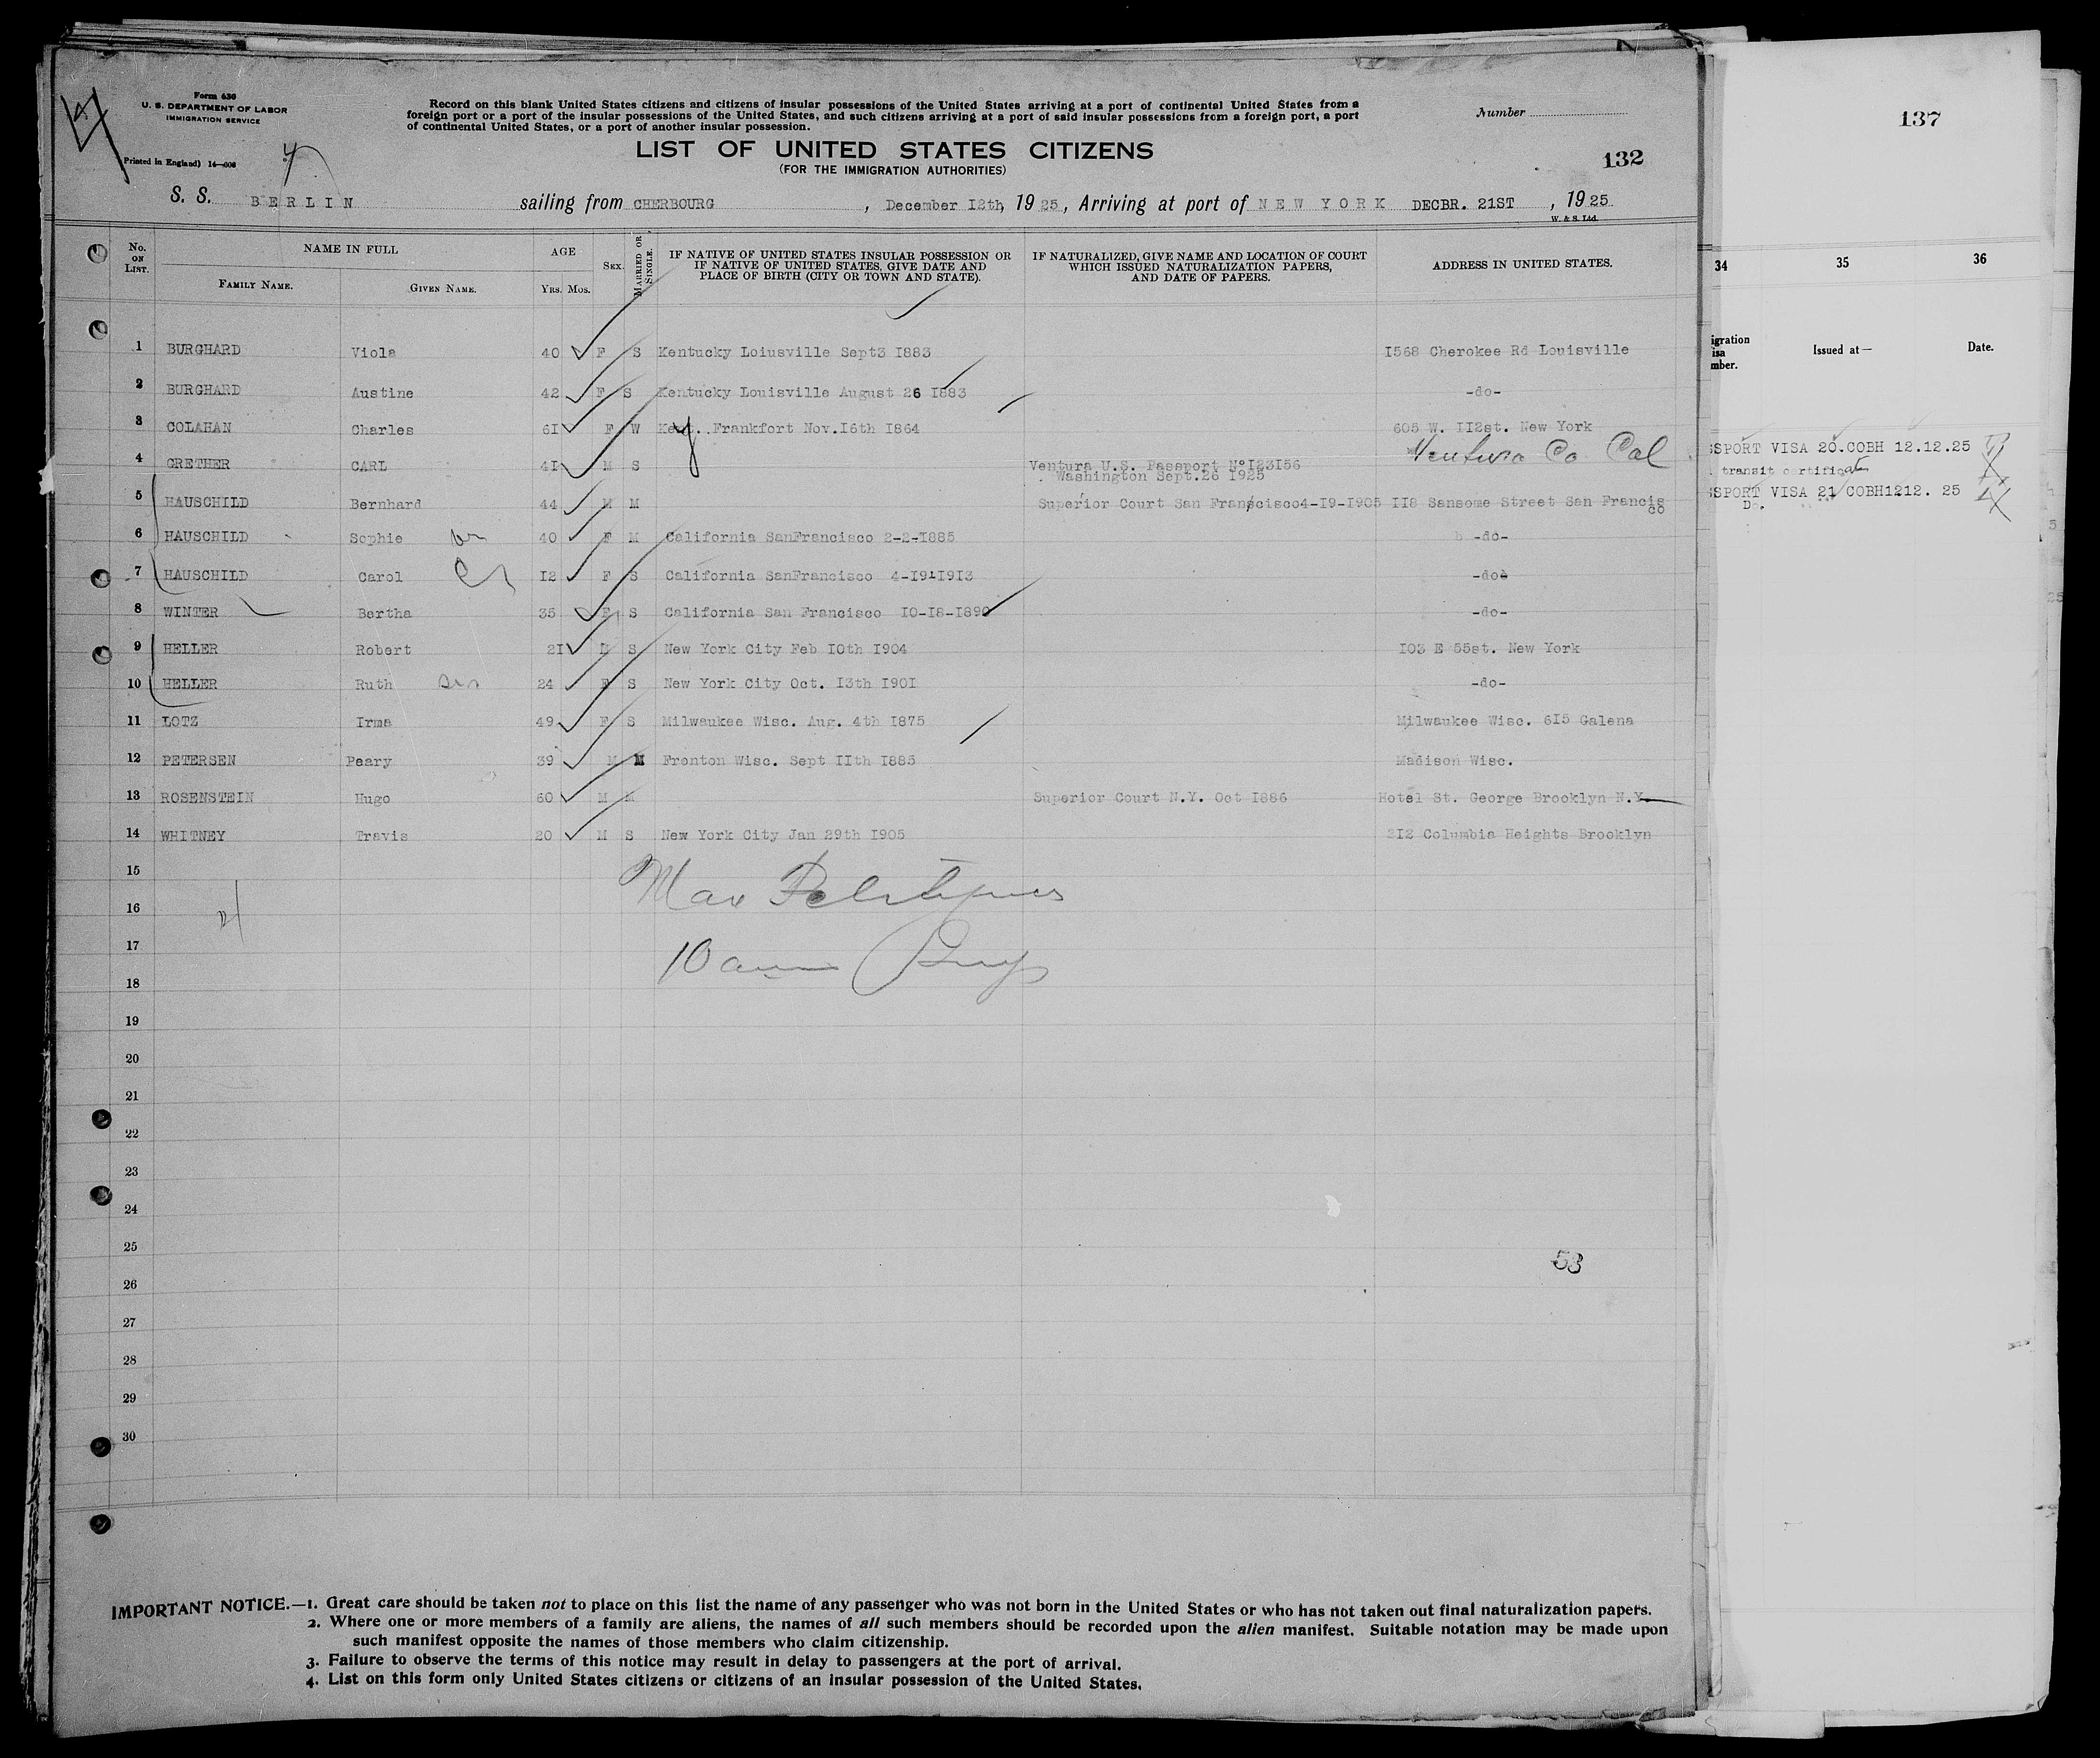 Form 630
U. S. DEPARTMENT OF LABOR
IMMIGRATION SERVICE
Printed in England) 14—608
Record on this blank United States citizens and citizens of insular possessions of the United States arriving at a port of continental United States from a
foreign port or a port of the insular possessions of the United States, and such citizens arriving at a port of said insular possessions from a foreign port, a port
of continental United States, or a port of another insular possession.
Number
LIST OF UNITED STATES CITIZENS
(FOR THE IMMIGRATION AUTHORITIES)
132
S. S. BERLIN sailing from CHERBOURG, December 12th, 1925, Arriving at port of NEW YORK DECBR. 21ST, 1925
W. & S. Ltd.
No. ON LIST. NAME IN FULL AGE SEX. MARRIED OR SINGLE. IF NATIVE OF UNITED STATES INSULAR POSSESSION OR IF NATIVE OF UNITED STATES, GIVE DATE AND PLACE OF BIRTH (CITY OR TOWN AND STATE). IF NATURALIZED, GIVE NAME AND LOCATION OF COURT WHICH ISSUED NATURALIZATION PAPERS, AND DATE OF PAPERS. ADDRESS IN UNITED STATES.
FAMILY NAME. GIVEN NAME. YRS. MOS.
1 BURGHARD Viola 40 F S Kentucky Loiusville Sept3 I883 I568 Cherokee Rd Louisville
2 BURGHARD Austine 42 F S Kentucky Louisville August 26 I883 -do-
3 COLAHAN Charles 6I F W Frankfort Nov.I6th I864 605 W. II2st. New York
4 GRETHER CARL 4I M S Ventura U.S. Passport N°I23I56 Ventura Co Cal
Washington Sept.26 I925
5 HAUSCHILD Bernhard 44 M M Superior Court San Franscisco4-I9-I905 II8 Sansome Street San Francis
co
6 HAUSCHILD Sophie 40 F M California SanFrancisco 2-2-I885 -do-
7 HAUSCHILD Carol I2 F S California SanFrancisco 4-I9-I9I3 -do-
8 WINTER Bertha 35 F S California San Francisco I0-I8-I890 -do-
9 HELLER Robert 2I S New York City Feb I0th I904 I03 E 55st. New York
10 HELLER Ruth 24 F S New York City Oct. I3th I90I -do-
11 LOTZ Irma 49 F S Milwaukee Wisc. Aug. 4th I875 Milwaukee Wisc. 6I5 Galena
12 PETERSEN Peary 39 M M Frenton Wisc. Sept IIth I885 Madison Wisc.
13 ROSENSTEIN Hugo 60 M M Superior Court N.Y. Oct I886 Hotel St. George Brooklyn N.Y.
14 WHITNEY Travis 20 M S New York City Jan 29th I905 2I2 Columbia Heights Brooklyn
15
16
17
18
19
20
21
22
23
24
25
26
27
28
29
30
53
IMPORTANT NOTICE.—1. Great care should be taken not to place on this list the name of any passenger who was not born in the United States or who has not taken out final naturalization papers.
2. Where one or more members of a family are aliens, the names of all such members should be recorded upon the alien manifest. Suitable notation may be made upon
such manifest opposite the names of those members who claim citizenship.
3. Failure to observe the terms of this notice may result in delay to passengers at the port of arrival.
4. List on this form only United States citizens or citizens of an insular possession of the United States.
137
34 35 36
igration
isa
mber.
Issued at— Date.
SSPORT VISA 20.COBH 12.12.25
transit certificate
SSPORT VISA 21 COBH1212. 25
Do.